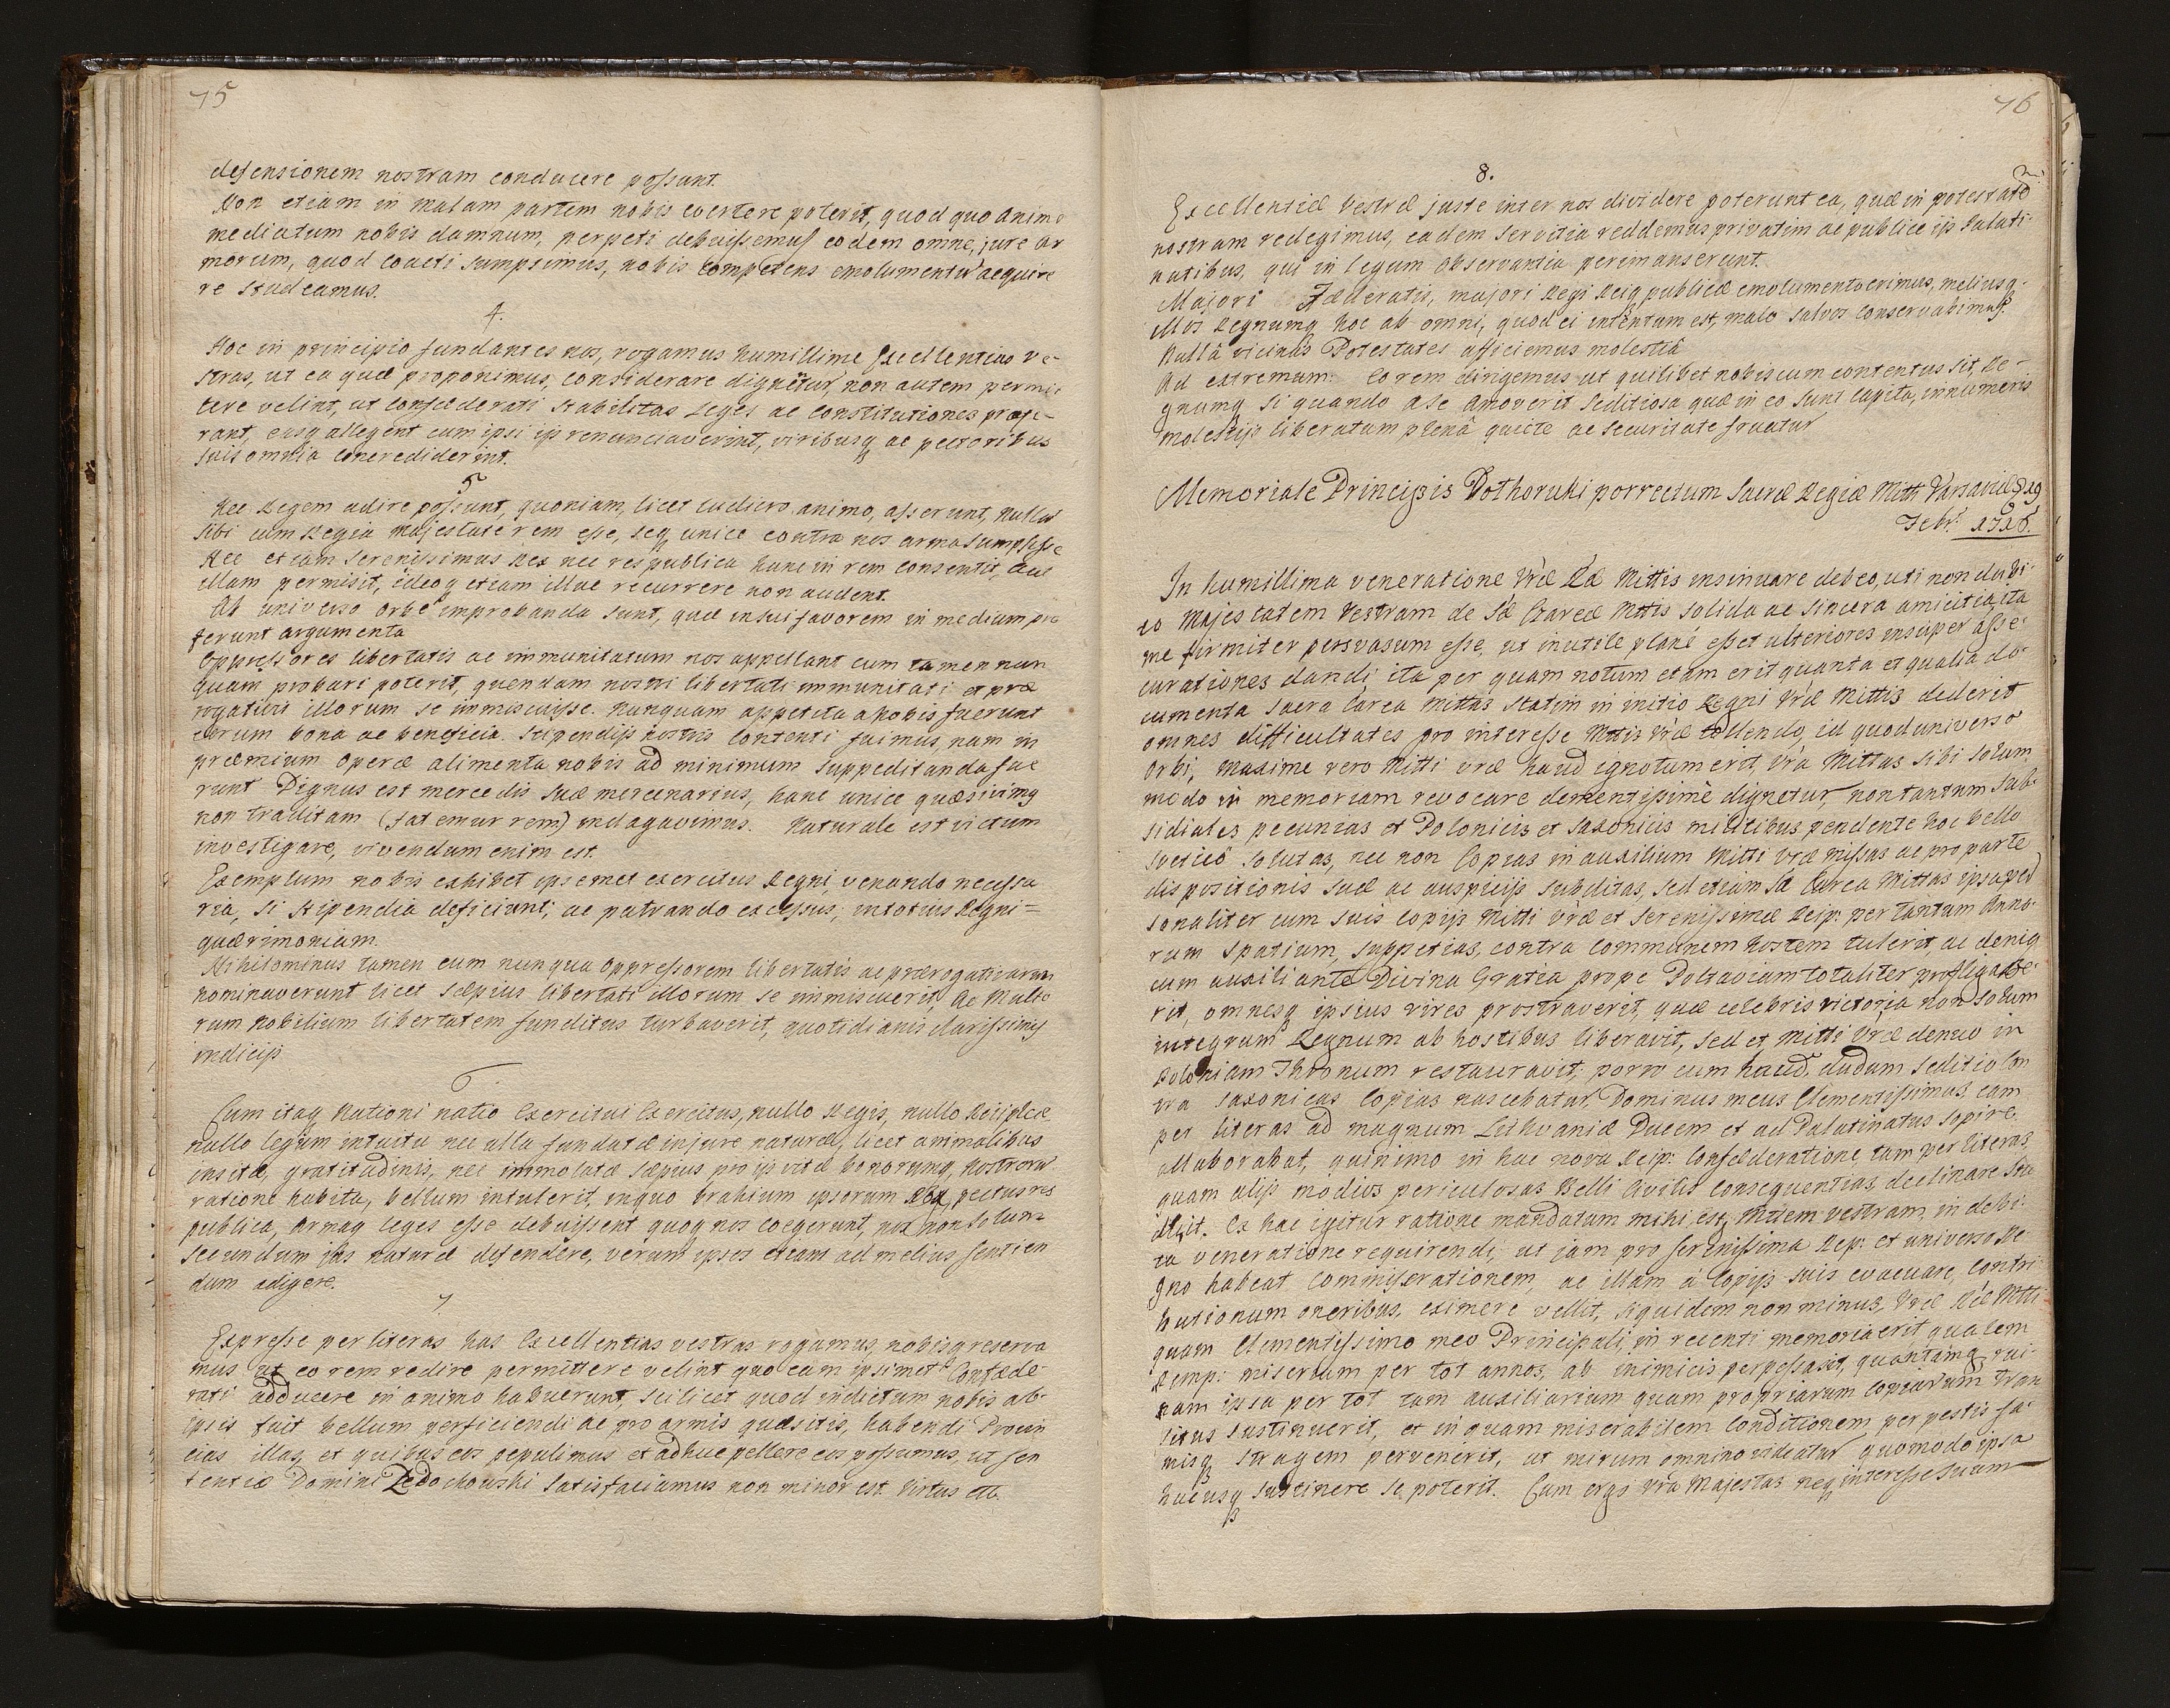 75
defensionem nostram conducere possunt.
Non etiam in malam partem nobis evertere poterit, quod quo animo
mediatum nobis damnum, perpeti debuissemus eodem omne, jure ar
morum, quod coacti sumpsimus, nobis competens emolumentũ acquire
re studeamus.
4.
Hoc in principio fundantes nos, rogamus humillime Excellentias ve-
stras, ut ea quæ proponimus, considerare dignẽtur, non autem permit
tere velint, ut confæderati stabilitas Leges ac Constitutiones profe-
rant, easq allegent cum ipsi ijs renunciaverint, viribusq ac pectoribus
suis omnia concrediderint.
5
Nec Regem adire possunt, quoniam, licet ludicro animo, asserunt, nullu
sibi cum Regia Majestate rem esse, seq unice contra nos arma sumpsisse
Nec etiam Serenissimus Rex nec respublica hanc in rem consentit, aut
illam permisit, ideoq etiam illuc recurrere non audent.
Ab universo orbe improbanda sunt, quæ in sui favorem in medium pro
ferunt argumenta
Oppressores libertatis ac immunitatum nos appellant cum tamen nun
quam probari poterit, quendam nostri libertati immunitati et præ
rogativis illorum se immiscuisse. Nunquam appetita a Nobis fuerunt
eorum bona ac beneficia. Stipendijs nostris Contenti fuimus, nam in
præmium operæ alimenta nobis ad minimum suppeditanda fue
runt Dignus est mercedis suæ mercenarius, hanc unice quæsivimg
non traditam (fatemur rem) indagavimus. Naturale est victum
investigare, vivendum enim est.
Exemplum nobis exhibet ipsemet exercitus Regni, venando necessa
ria, si stipendia deficiunt; ac patrando excessus, in totius Regni =
quærimoniam.
Nihilominus tamen eum nunqua oppressorem libertatis ac prærogativarum
nominaverunt licet sæpius libertati illorum se immiscuerit, Ac Multo
rum Nobilium libertatem funditus turbaverit, quotidianis clarissimis
indicijs
6
Cum itaq Nationi natio Exercitui Exercitus, nullo Regis, nullo Reipblcæ
nullo legum intuitu nec ulla fundatæ in jure naturæ, licet animalibus
insitæ, gratitudinis, nec immolatæ sæpius pro ijs vitæ bonorumq nostrorũ
ratione habita, bellum intulerit, in quo brahium ipsorum Rex, pectus res
publica, armaq leges esse debuissent quoq nos coegerunt, nos non solum
secundum jus naturæ defendere, verum ipsos etiam ad melius sentien
dum adigere.
7
Expresse per literas has Excellentias vestras rogamus, nobisq reserva
mus ut eo rem redire permittere velint quo eam ipsimet Confæde-
rati adducere in animo habuerunt, scilicet quod indictum nobis ab
ipsis fuit bellum perficiendi ac pro armis quæsitis, habendi Provin
cias illas, et quibus eos pepulimus et adhuc pellere eos possumus, ut sen
tentiæ Domini Ledochowski satisfaciamus non minor est Virtus etc.
76
8.
Excellentiæ Vestræ juste inter nos dividere poterunt ea, quæ in potestatẽ
nostram redegimus, eadem servitia reddemus privatim ac publice ijs Palati-
natibus, qui in legum observantia permanserunt.
Majori Fæderatis, majori Regi Reiq publicæ emolumento erimus, meliusq.
Nos Regnumq hoc ab omni, quod ei intentum est, malo salvos conservabimus.
Nullâ vicinas Potestates afficiemus molestiâ
Ad extremum: Eo rem dirigemus ut quilibet nobiscum contentus sit, Re-
gnumq si quando a se amoverit seditiosa quæ in eo sunt capita, innumeris
molestijs liberatum plenâ quiete ac securitate fruatur
Memoriale Principis Dolhoruki porrectum Sacræ Regiæ Mtti Varsaviæ D 29
Febr: 1716.
In humillima veneratione Vræ Ræ Mittis insinuare debeo, uti non dubi-
to Majestatem Vestram de Sæ Czareæ Mttis solida ac sincera amicitia, ita
me firmiter persvasum esse, ut inutile plane esset ulteriores insuper asse-
curationes dandi, ita per quam notum etiam erit quanta et qualia do-
cumenta sacra Carea Mittas statim in initio Regni Vræ Mittis dederit
omnes difficultates pro interesse Mttis Vræ tollendo, id quod universo
orbi, maxime vero Mitti vræ haud ignotum erit, Vra Mittas sibi solum
modo in memoriam revocare clementissime dignetur, non tantum sub-
sidiales pecunias et Polonicis et Saxonicis militibus pendente hoc bello
svetico solutas, nec non Copias in auxilium Mitti Vræ missas ac pro parte
dispositionis suæ ac auspicijs subditas, sed etiam Sa Carea Mittas ipsa per
sonaliter cum suis copijs Mitti Vræ et Serenissimæ Reip: per tantum Anno-
rum spatium, suppetias, contra Communem hostem tulerit, ac deniq
eum auxiliante Divina Gratia prope Poltaviam totaliter profligave-
rit, omnesq ipsius vires prostraverit, quæ celebris victoria non solum
integrum Regnum ab hostibus liberavit, sed et Mitti Vræ denuo in
Poloniam Thronum restauravit; porro cum haud dudum seditio Con
tra Saxonicas Copias nascebatur, Dominus meus Clementissimus, eam
per literas ad magnum Lithvaniæ Ducem et ad Palatinatus sopire
allaborabat, quinimo in hac nova Reip: Confæderatione tam per literas,
quam alijs modios periculosas Belli Civilis Consequentias declinare stu
duit. Ex hac igitur ratione mandatum mihi est, Mttem Vestram, in debi-
ta veneratione requirendi, ut jam pro serenissima Rep: et universo Re
gno habeat Commiserationem, ac illam à Copijs suis evacuare, Contri
butionum oneribus, eximere vellit, siquidem non minus Vræ Ræ Mtti
quam Clementissimo meo Principali, in recenti memoria erit qualem
Remp: miseriam per tot annos, ab inimicis perpessa sit, quantamq rui-
nam ipsa per tot tam auxiliarium quam propriarum Copiarum tran
situs sustinuerit, et in quam miserabilem Conditionem per pestis fa-
misq stragem pervenerit, ut mirum omnino videatur quomodo ipsa
hucusq sustinere se poterit. Cum ergo Vra Majestas neq interesse suum